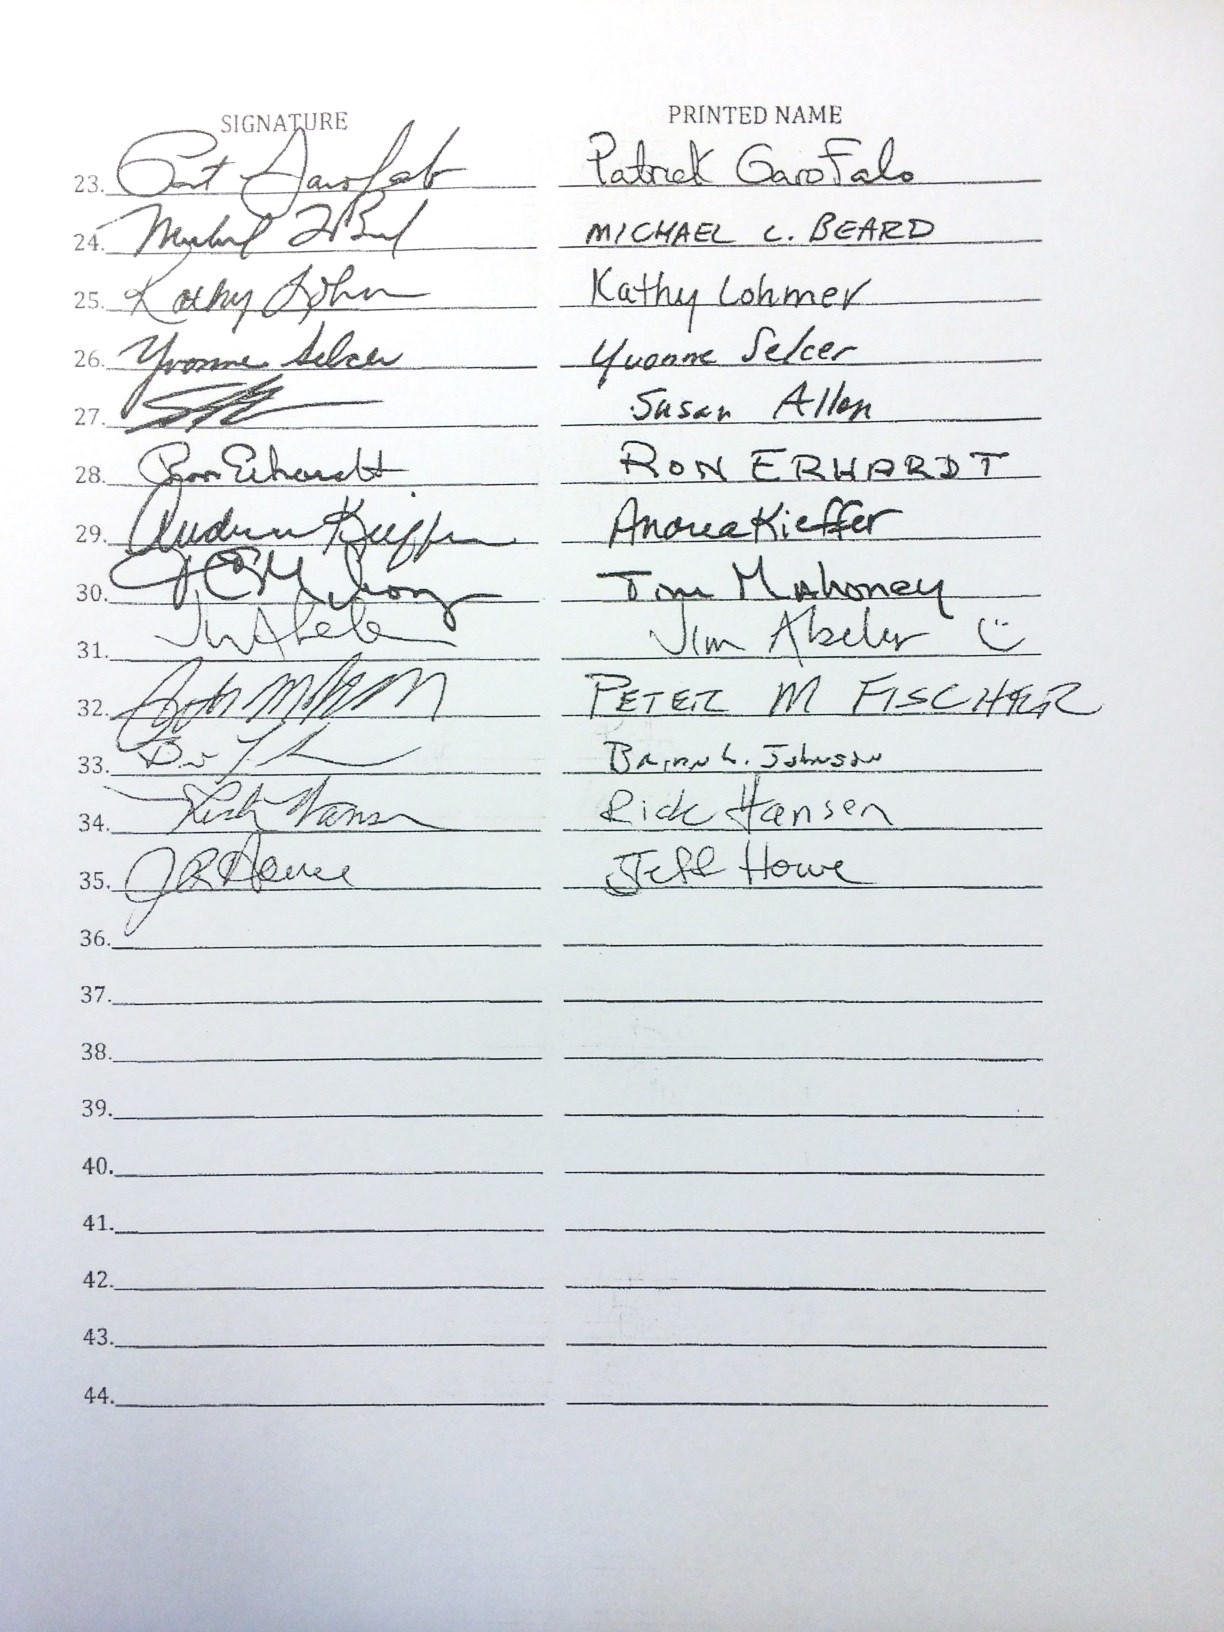 SIGNATURE PRINTED NAME
23. Pat Garofalo Patrick Garofalo
24. MICHAEL C. BEARD
25. Kathy Lohmer
26. Yvonne Selcer Yvonne Selcer
27. Susan Allen
28. Ron Erhardt RON ERHARDT
29. Andrea Kieffer Andrea Kieffer
30. Tim Mahoney
31. Jim Abeler Jim Abeler
32. PETER M FISCHER
33. Brian L. Johnson
34. Rick Hansen Rick Hansen
35. Jeff Howe
36.
37.
38.
39.
40.
41.
42.
43.
44.